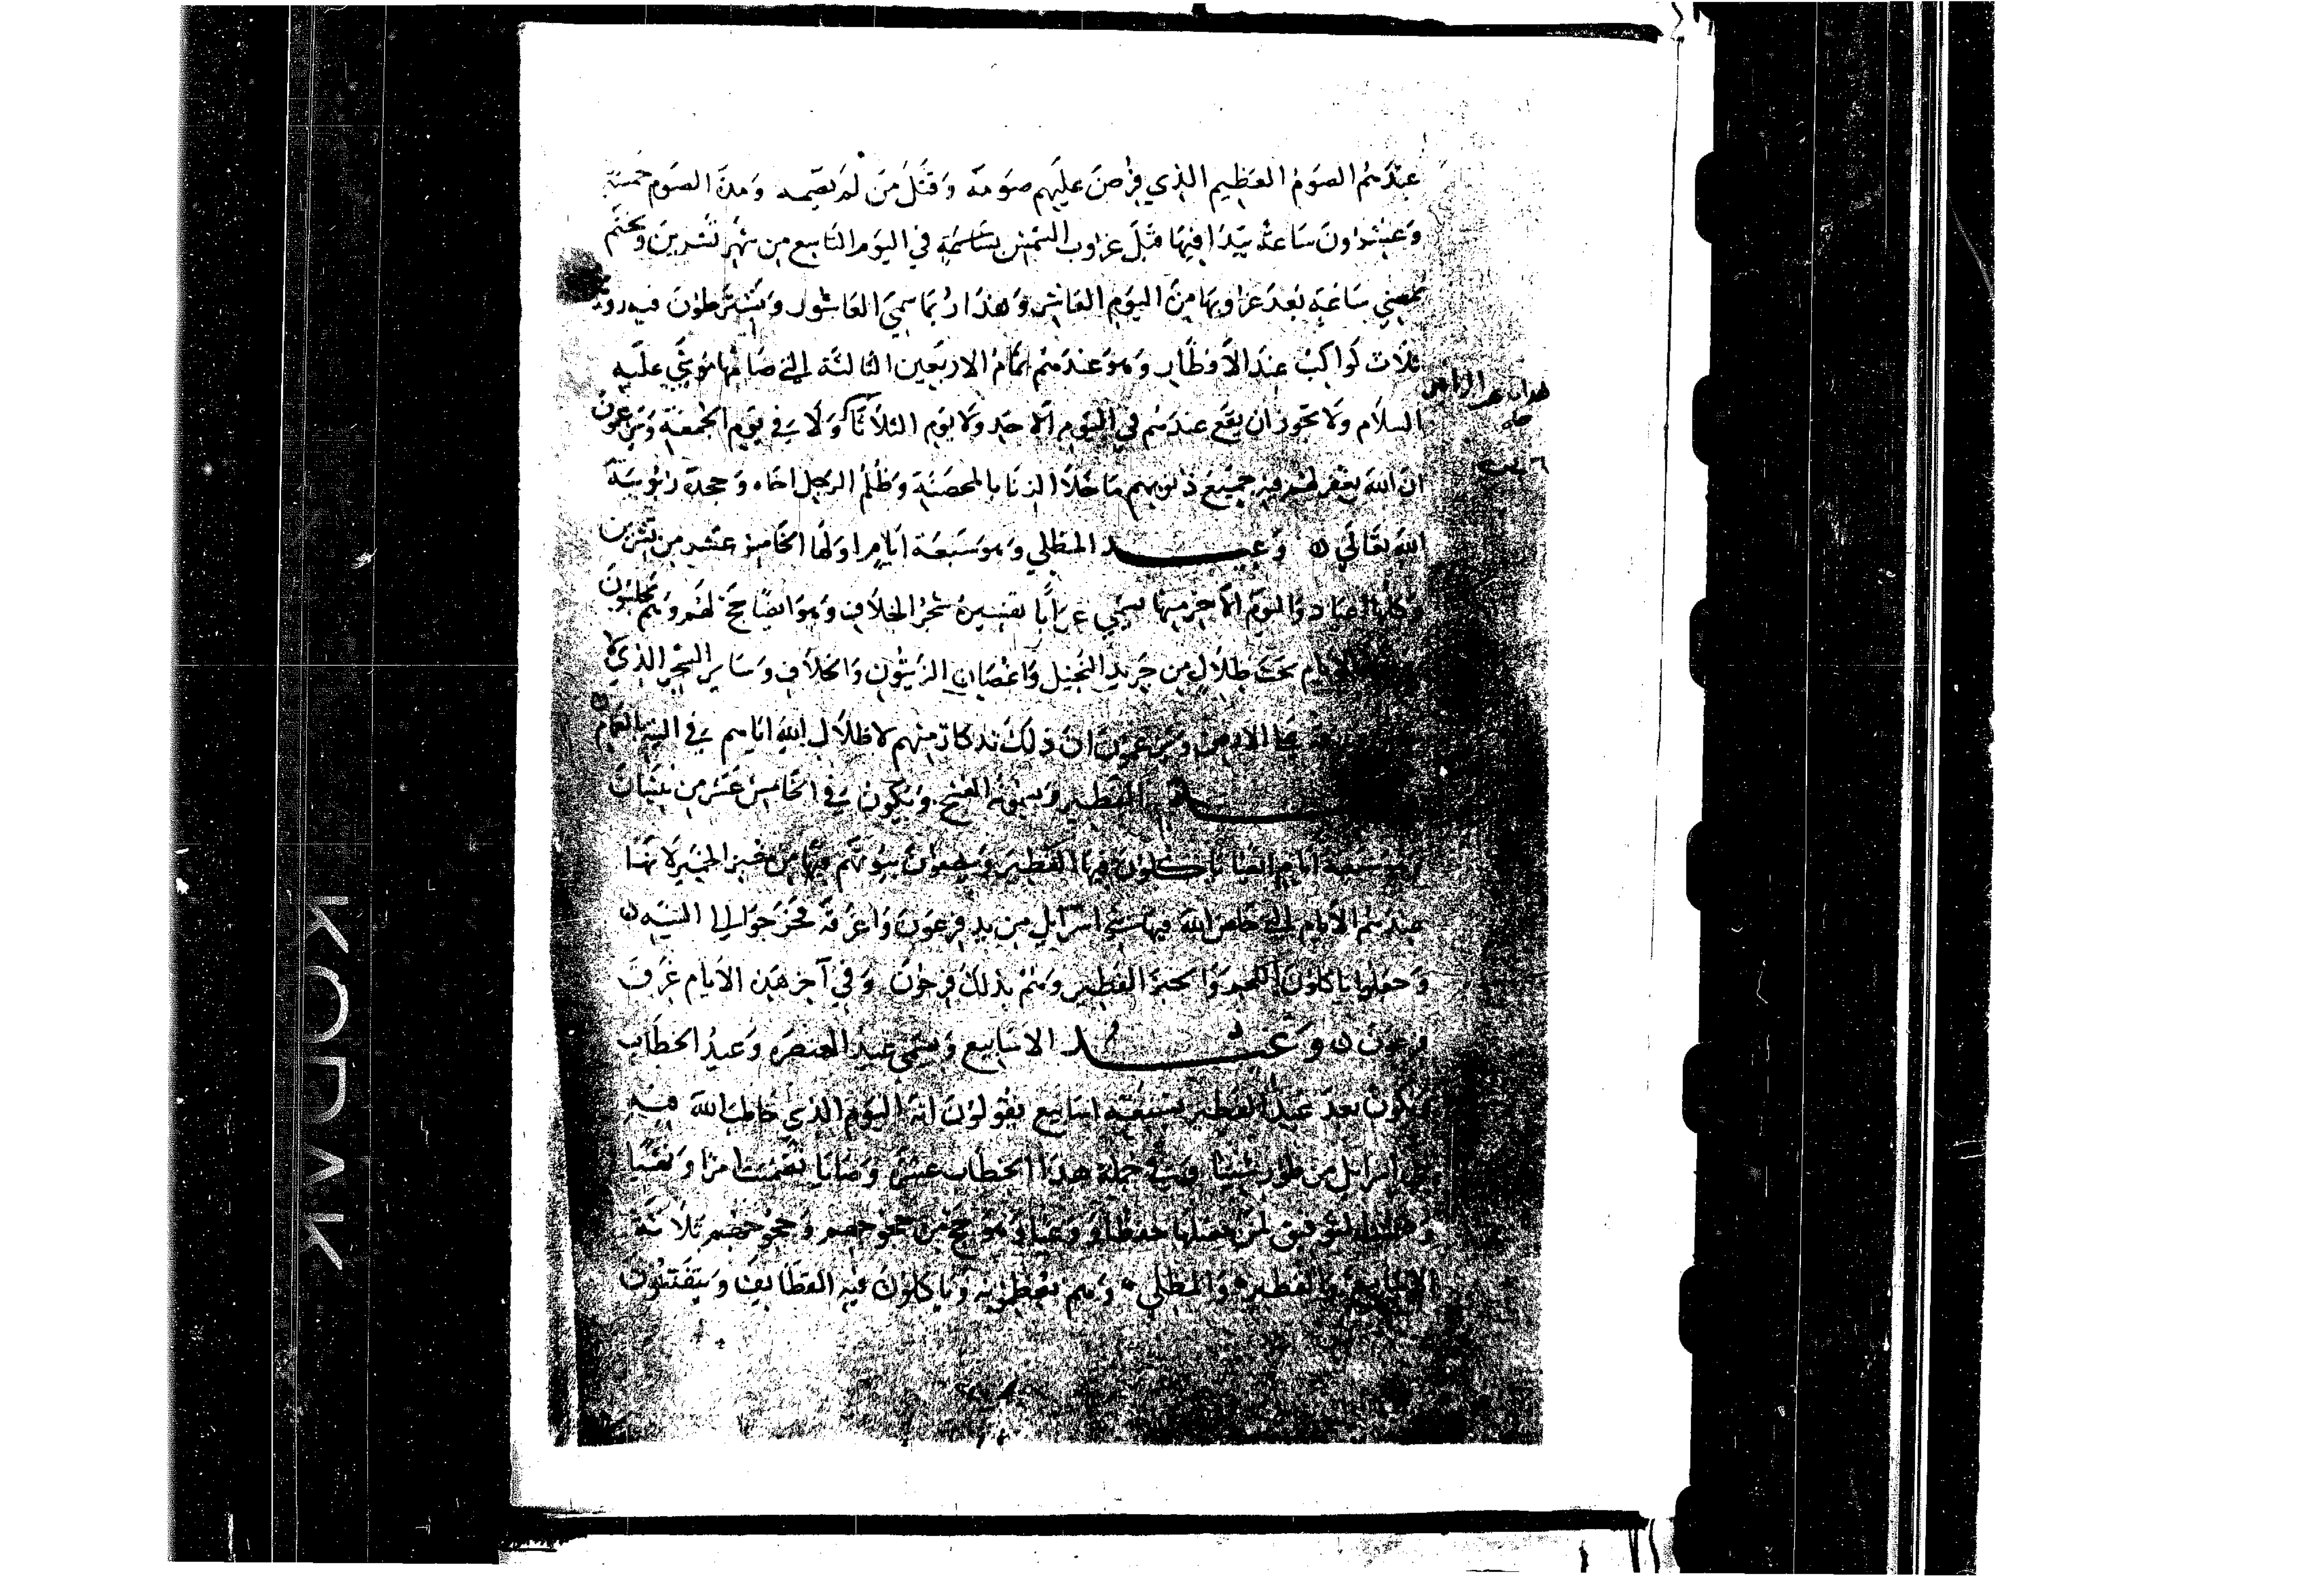 عندهم الصوم العظيم الذي فرض عليهم صومه وقتل من لم يصمه ومدة الصوم خمسة
وعشرون ساعة يبدا فيها قبل غروب الشمس بساعة في اليوم التاسع من شهر تشرين ويختم
بمضي ساعة بعد غروبها من اليوم العاشر وهذا ربما سمي العاشور ويشترطون فيه روية
ثلاث كواكب عند الافطار وهو عندهم تمام الاربعين الثالثة التي صامها موسى عليه
السلام ولا يجوز ان يقع عندهم في اليوم الاحد ولا يوم الثلاثا ولا في يوم الجمعة ويزعمون
ان الله يغفر لهم فيه جميع ذنوبهم ما خلا الزنا بالمحصنة وظلم الرجل اخاه وجحده ربوبية
الله تعالى وعيد المظلي وهو سبعة ايام اولها الخامس عشر من تشرين
وكلها اعياد واليوم الاخر منها يسمى عرابا تفسيره شجر الخلاف وهو ايضا حج لهم وهم يجلسون
الايام تحت ظلال من جريد النخيل واغصان الزيتون والخلاف وساير الشجر الذي لا
الارض ويزعمون ان ذلك تذكار منهم لاظلال الله اياهم في التيه بالغمام
الفطير ويسمونه الفسح ويكون في الخامس عشر من نيسان
وهو سبعة ايام ايضا ياكلون فيها الفطير وبيوتهم فيها من خبز الخمير لانها
عندهم الايام التي خلص الله فيها بني اسرائيل من يد فرعون واغرقه فخرجوا الى التيه
وجعلوا ياكلون اللحم والخبز الفطير وهم بذلك فرحون وفي آخر هذه الايام غرق
فرعون وعيد الاسابيع ويسمى عيد العنصره وعيد الخطاب
ويكون بعد عيد الفطير بسبعة اسابيع يقولون انه اليوم الذي خاطب الله فيه
بني اسرائيل من طور سينا وفي جملة هذا الخطاب عشر وصايا تضمنت امرا ونهيا
لمن حفظا وهو حج من حجوجهم وحجوجهم ثلاثة
الاسابيع والفطير والمظلي وهم يعظمونه وياكلون فيه القطايف ويتفننون
KODAK